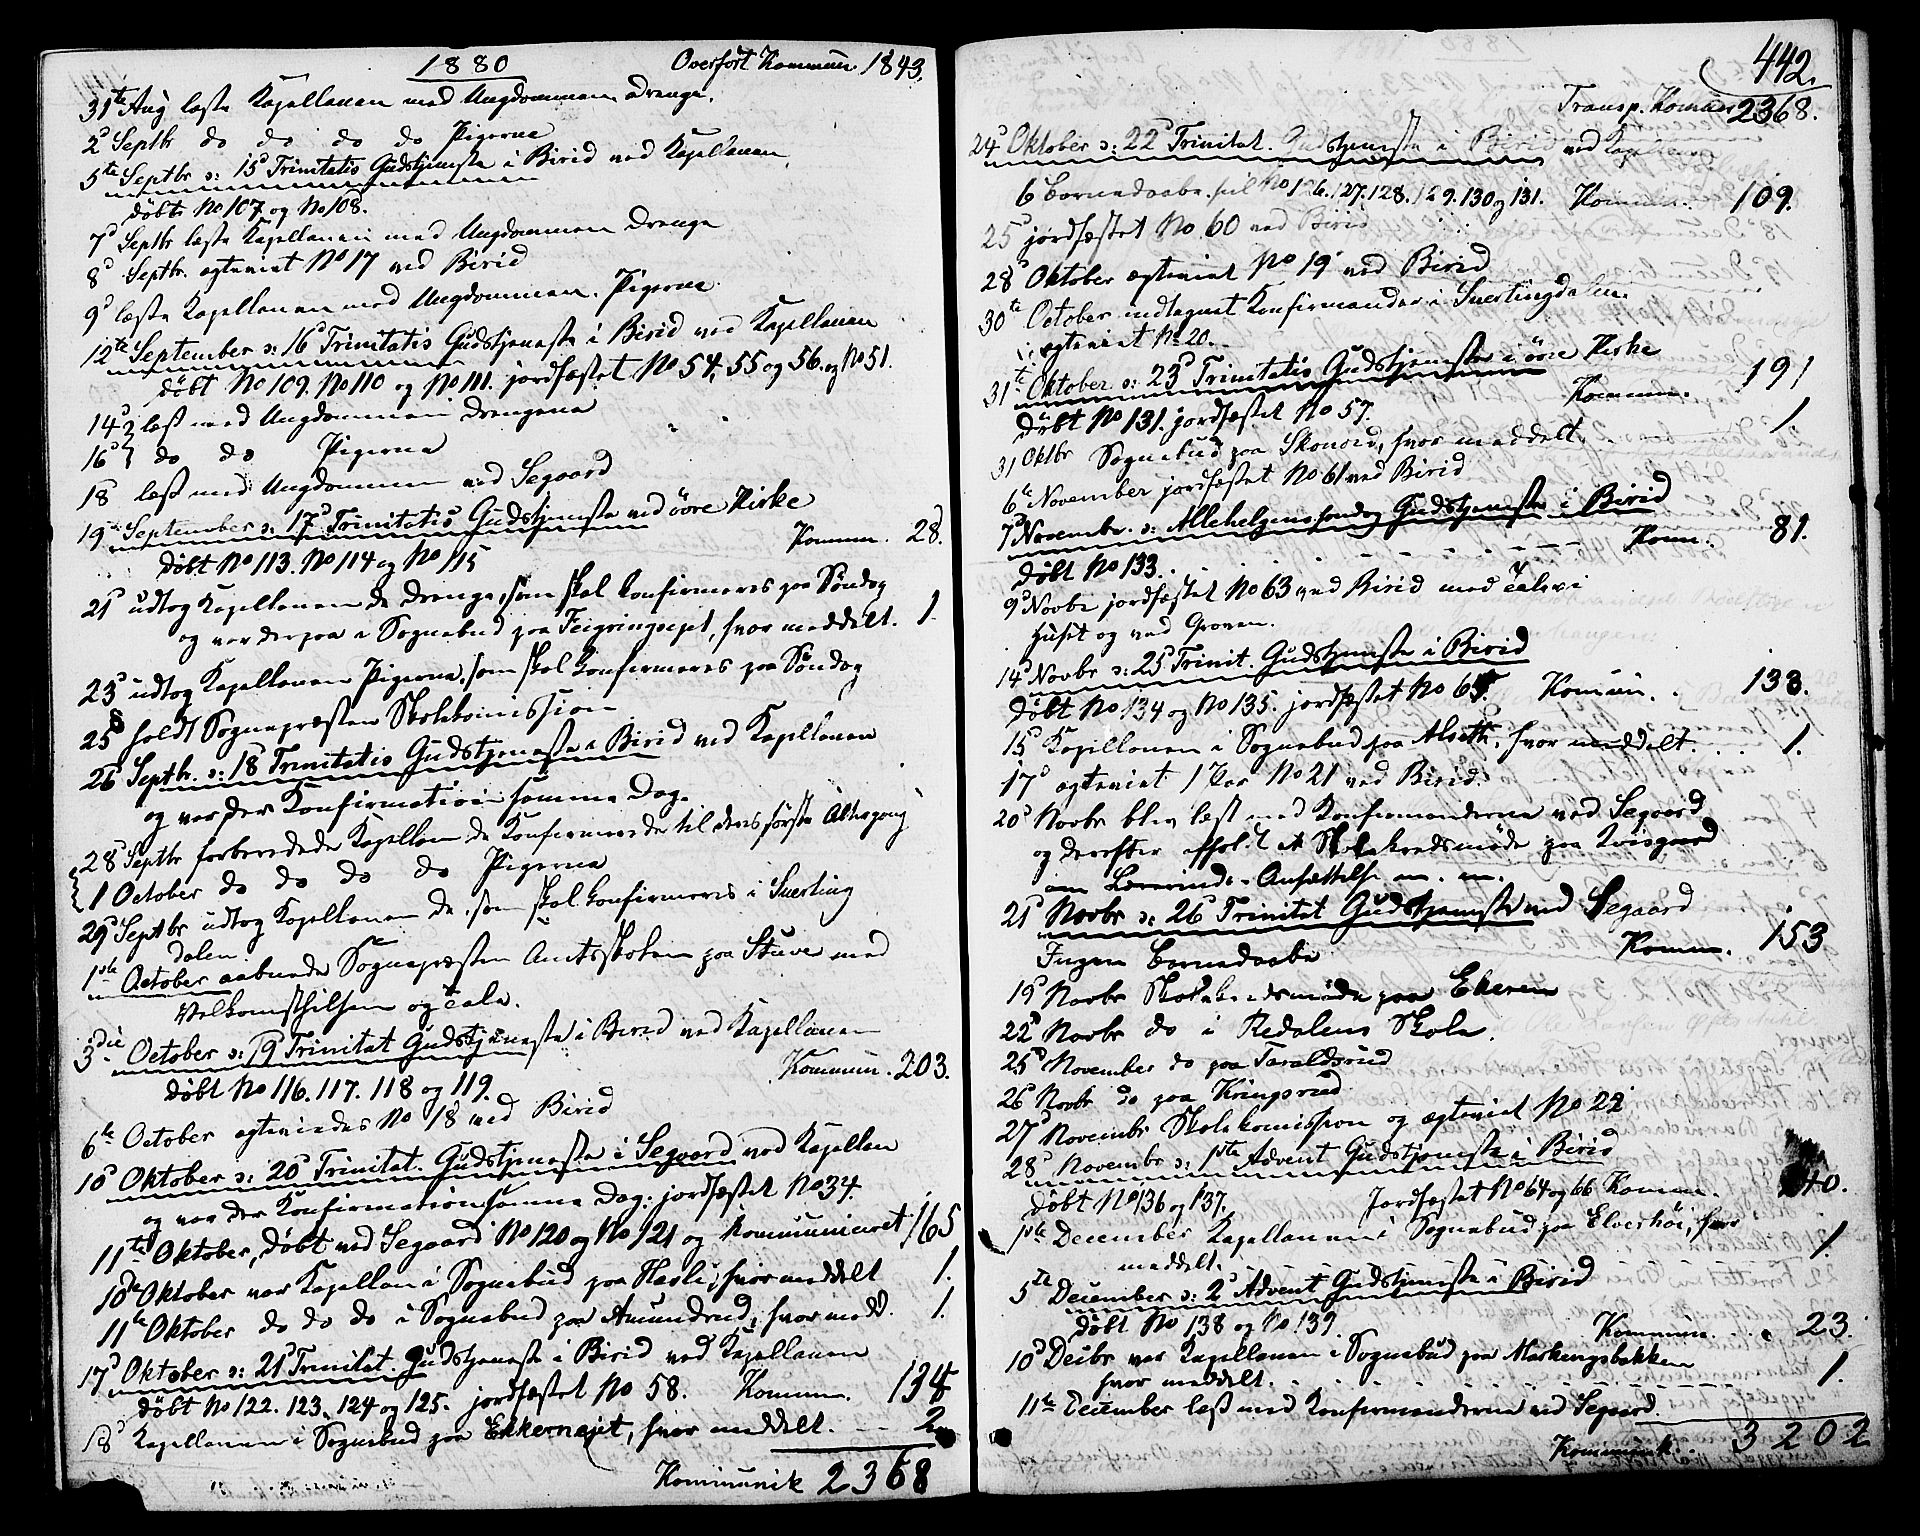 1880 Overført Kommun. 1843.
31te Aug læste Kapellanen med Ungdommen Drenge.
2d Septbr do do do do Pigerne
5te Septbr ɔ: 15d Trinitatis Gudstjeneste i Birid ved Kapellanen,
døbt No 107 og No 108.
7d Septbr læste Kapellanen med Ungdommen Drenge
8d Septbr. egteviet No 17 ved Birid
9d læste Kapellanen med Ungdommen. Pigerne.
12te September ɔ: 16d Trinitatis Gudstjeneste i Birid ved Kapellanen
døbt No 109. No 110 og No 111. jordfæstet No 54, 55 og 56. og No 51.
14d læst med Ungdommen Drengene
16d do do Pigerne
18 læst med Ungdommen ved Segaard
19 September ɔ: 17d Trinitatis Gudstjeneste ved øvre Kirke
døbt No 113. No 114 og No 115 Kommun. 28.
21d udtog Kapellanen de Drenge, som skal konfirmeres paa Søndag
og var derpaa i Sognebud paa Feigringsejet, hvor meddelt. 1.
23d udtog Kapellanen Pigerne, som skal konfirmeres paa Søndag
25d holdt Sognepræsten Skolekomission
26d Septbr. ɔ: 18d Trinitatis Gudstjeneste i Birid ved Kapellanen
og var der Konfirmation samme Dag.
28d Septbr forberedede Kapellan de Konfirmerede til deres første Altergang
1 October do do do do Pigerne
29d Septbr udtog Kapellanen de, som skal konfirmeres i Snerting
dalen.
1ste October aabnede Sognepræsten Amtsskolen paa Stuve med
Velkomsthilsen og Tale.
3die October ɔ: 19 Trinitat Gudstjeneste i Birid ved Kapellanen
døbt No 116. 117. 118 og 119. Kommun. 203.
6te October egteviedes No 18 ved Birid
10d Oktober ɔ: 20d Trinitat. Gudstjeneste i Segaard ved Kapellan
og var der Konfirmation samme Dag. jordfæstet No 34.
11te Oktober, døbt ved Segaard No 120 og No 121 og kommuniceret 165
10de Oktober var Kapellan i Sognebud paa Hasli, hvor meddelt 1.
11te Oktober do do do i Sognebud paa Amundrud, hvor medd. 1.
17d Oktober ɔ: 21d Trinitat. Gudstjeneste i Birid ved Kapellanen
døbt No 122. 123. 124 og 125. jordfæstet No 58. Kommun. 134
18d Kapellanen i Sognebud paa Ekkernejet, hvor meddelt. 2
Kommunik 2368
442.
Transp. Komun 2368.
24d Oktober ɔ: 22d Trinitat. Gudstjeneste i Birid ved Kapellanen
6 Barnedaabe, til No 126. 127. 128. 129. 130 og 131. Kommun. 109.
25d jordfæstet No 60 ved Birid
28d Oktober egteviet No 19 ved Birid
30te October indtegnet Konfirmander i Snertingdalen.
egteviet No 20.
31te Oktober ɔ: 23d Trinitatis Gudstjeneste i øvre Kirke
døbt No 131. jordfæstet No 57. Kommun. 191
31 Oktbr Sognebud paa Skonord, hvor meddelt. 1.
6te November jordfæstet No 61 ved Birid
7d Novembr. ɔ: Allehelgenssøndag Gudstjeneste i Birid
døbt No 133. Komm. 81.
9d Novbr jordfæstet No 63 ved Birid med Tale i
Huset og ved Graven.
14d Novbr ɔ: 25d Trinit. Gudstjeneste i Birid
døbt No 134 og No 135. jordfæstet No 65. Komun. 133.
15d Kapellanen i Sognebud paa Alseth, hvor meddelt. 1.
17d egteviet 1 Par No 21 ved Birid.
20d Novbr blev læst med Konfirmanderne ved Segaard
og derefter afholdt et Skolekredsmøde paa Kvisgaard
om Lærerinde-Ansættelse m. m.
21d Novbr ɔ: 26d Trinitat Gudstjeneste ved Segaard
Ingen Barnedaabe Komm. 153
19d Novbr Skolekredsmøde paa Ekeren
22d Novbr do i Redalens Skole.
25d November do paa Taraldsrud
26d Novbr do paa Kringsrud
27d Novembr Skolekomission og egteviet No 22
28d Novembr ɔ: 1ste Advent Gudstjeneste i Birid
døbt No 136 og 137. Jordfæstet No 64 og 66 Komun. 140.
1ste December Kapellanen i Sognebud paa Elverhøi, hvor
meddelt. 1.
5te December ɔ: 2d Advent Gudstjeneste i Birid
døbt No 138 og No 139. Kommun. 23.
10d Decbr var Kapellanen i Sognebud paa Markengsbakken
hvor meddelt. 1.
11te December læst med Konfirmanderne ved Segaard.
Kommunik. 3202